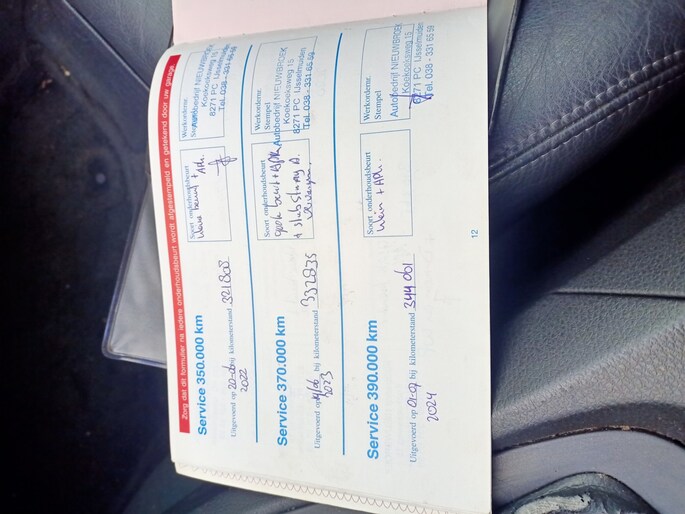 Zorg dat dit formulier na iedere onderhoudsbeurt wordt afgestempeld en getekend door uw garage
Service 350.000 km
Uitgevoerd op 20-06 bij kilometerstand 321808
2022
Soort onderhoudsbeurt
beurt + APK.
Werkordernr.
Autobedrijf NIEUWBROEK
Koekoeksweg 15
8271 PC IJsselmuiden
Tel. 038 - 331 65 59
Service 370.000 km
Uitgevoerd op 14/06 bij kilometerstand 332835
2023
Soort onderhoudsbeurt
grote beurt + APK
+
Werkordernr.
Stempel
Autobedrijf NIEUWBROEK
Koekoeksweg 15
8271 PC IJsselmuiden
Tel. 038 - 331 65 59
Service 390.000 km
Uitgevoerd op 01-07 bij kilometerstand 344061
2024
Soort onderhoudsbeurt
klein + APK.
Werkordernr.
Stempel
Autobedrijf NIEUWBROEK
Koekoeksweg 15
8271 PC IJsselmuiden
Tel. 038 - 331 65 59
12